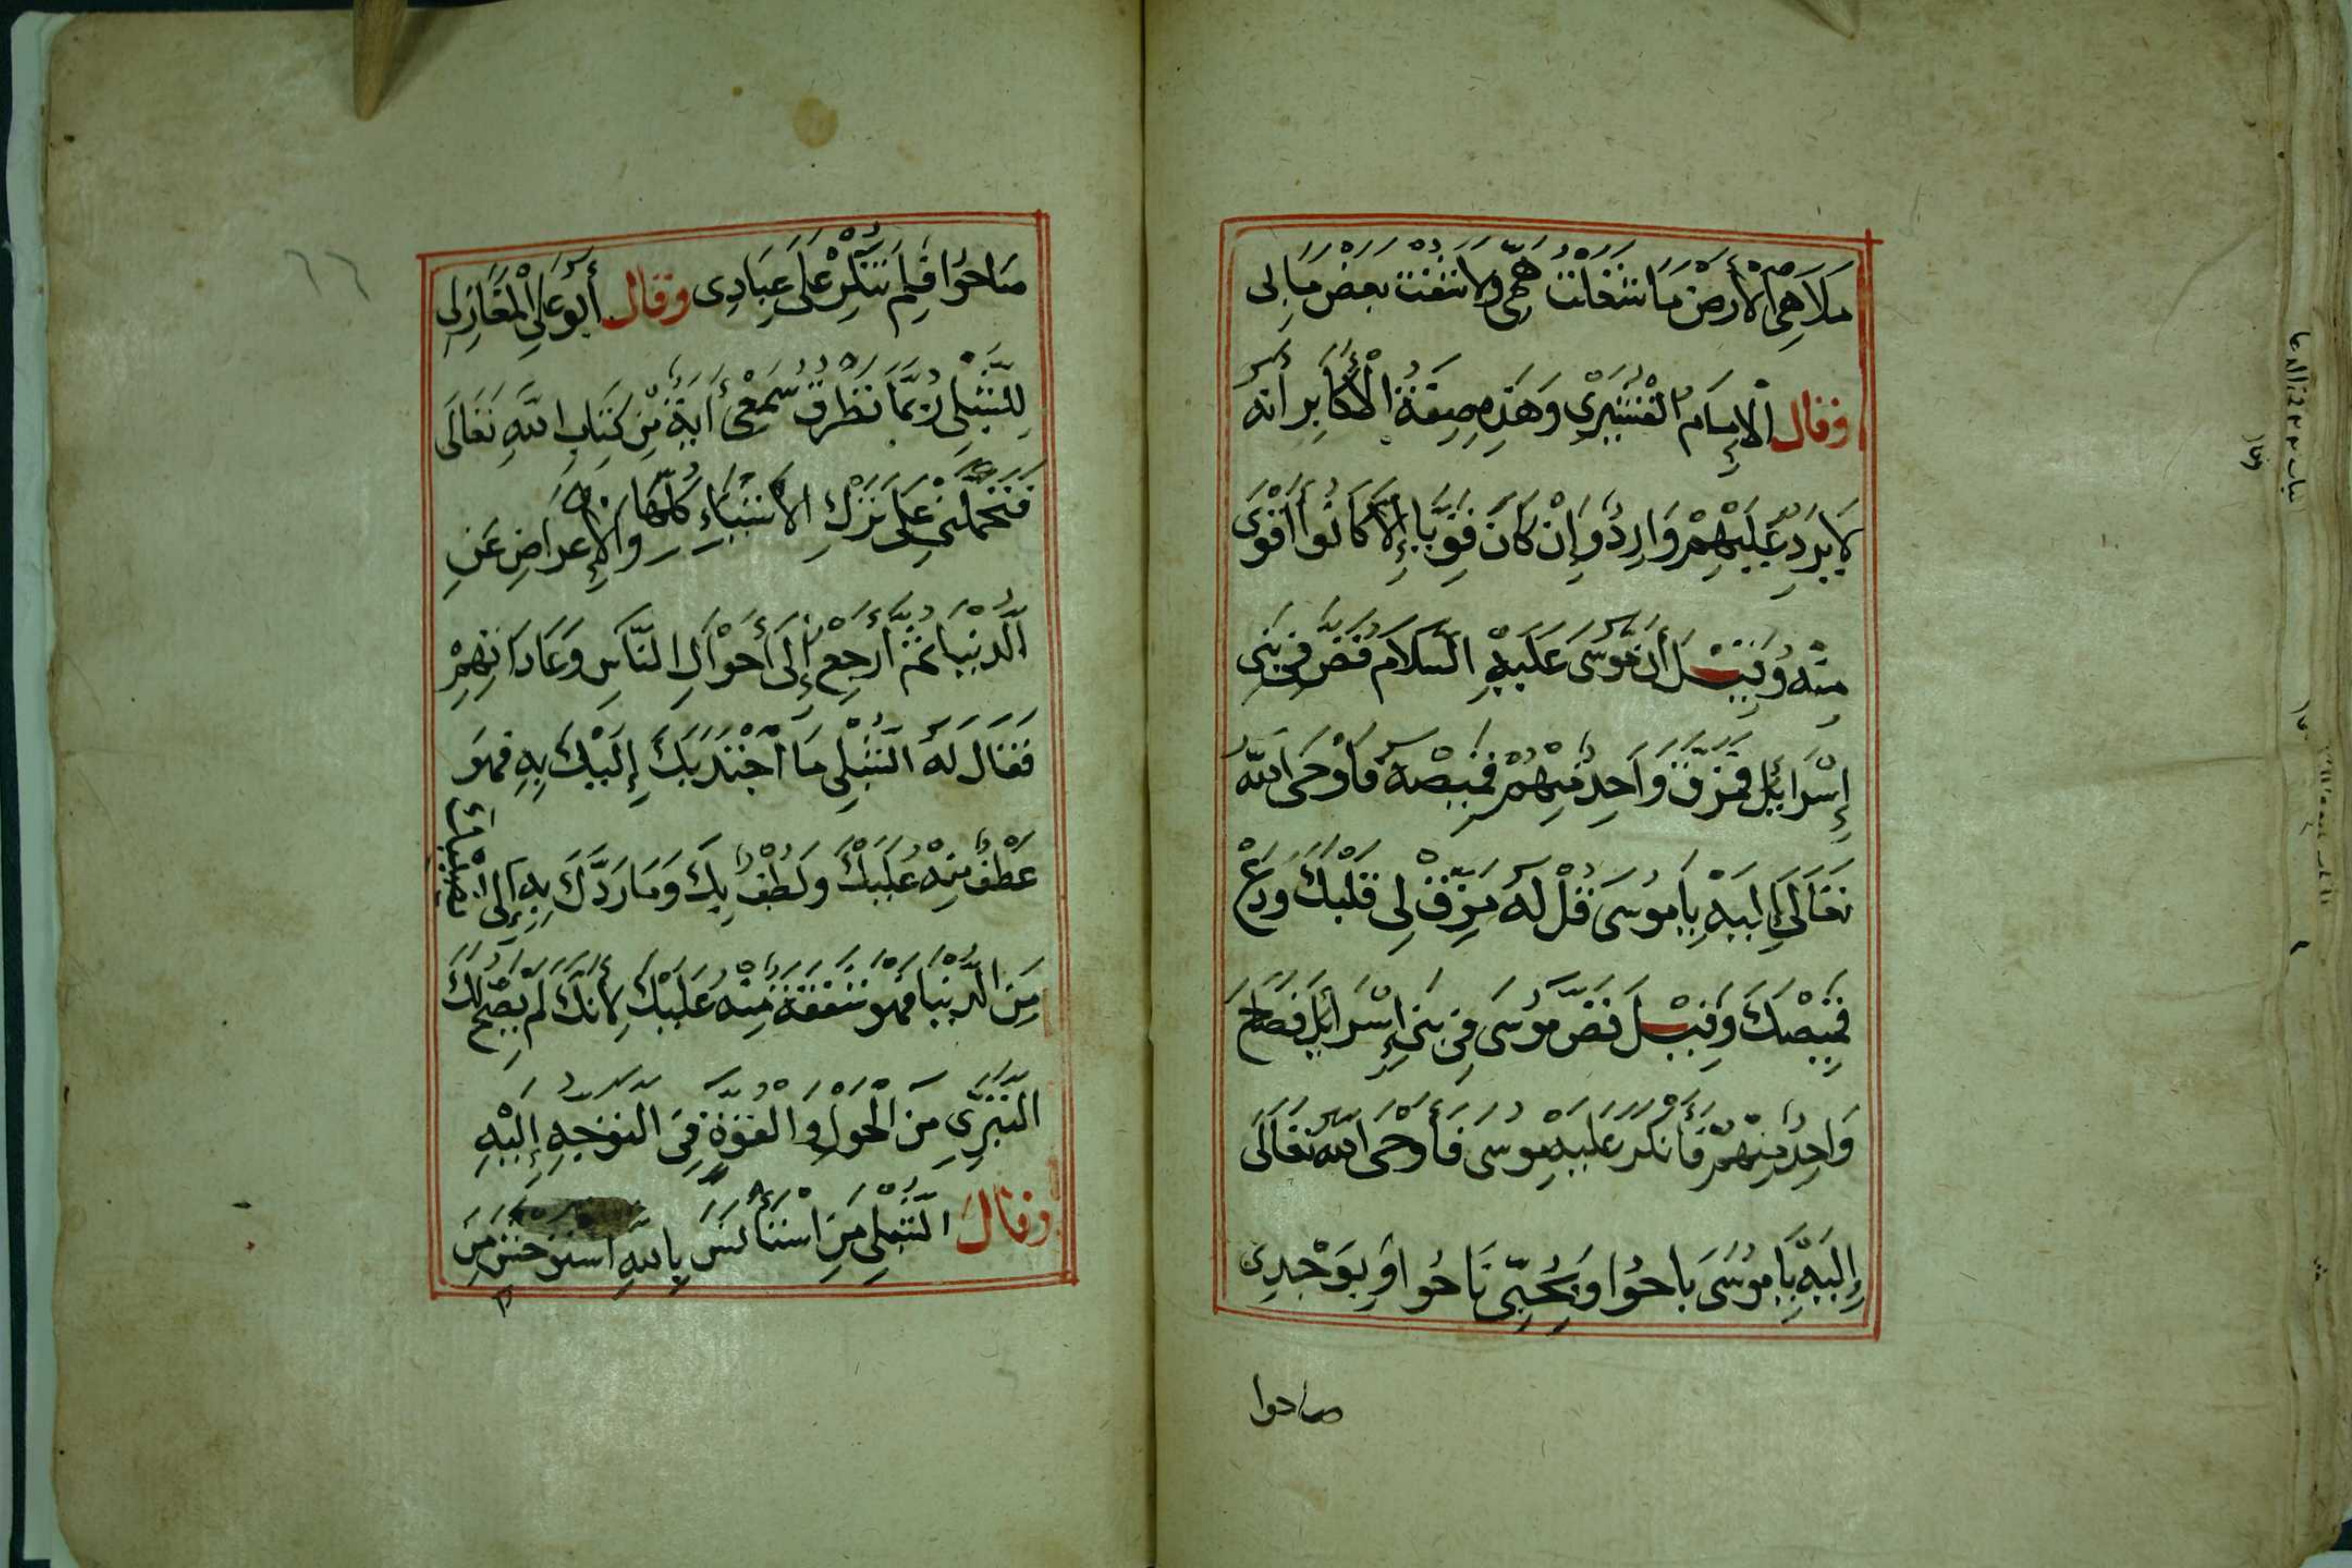 مَلَاهِي الْأَرْضِ مَا شَغَلَتْ هَمِّي وَلَا شَفَتْ بَعْضَ مَا بِي
وقال الْإِمَامُ الْقُشَيْرِي وَهَذِهِ صِفَةُ الْأَكَابِرِ أَنَّهُ
لَا يَرِدُ عَلَيْهِمْ وَارِدٌ وَإِنْ كَانَ قَوِيًّا إِلَّا كَانُوا أَقْوَى
مِنْهُ وَقِيْلَ أَنَّ مُوسَى عَلَيْهِ السَّلَامُ قَصَّ فِي بَنِي
إِسْرَائِيْلَ فَمَزَّقَ وَاحِدٌ مِنْهُمْ قَمِيْصَهُ فَأَوْحَى اللّٰه
تَعَالَى إِلَيْهِ يَا مُوسَى قُلْ لَهُ مَزِّقْ لِي قَلْبَكَ وَدَعْ
قَمِيْصَكَ وَقِيْلَ قَصَّ مُوسَى فِي بَنِي إِسْرَائِيْلَ فَصَاحَ
وَاحِدٌ مِنْهُمْ فَأَنْكَرَ عَلَيْهِ مُوسَى فَأَوْحَى اللّٰهُ تَعَالَى
إِلَيْهِ يَا مُوسَى بَاحُوا وَبِحُبِّي نَاحُوا وَبِوَجْدِي
صاحوا
صَاحُوا فَلِمَ تُنْكِرْ عَلَى عِبَادِي وقال أَبُو عَلِي الْمَغَازِلِي
لِلشِّبْلِي رُبَّمَا تَطْرُقُ سَمْعِي أَيَةٌ مِنْ كِتَابِ اللّٰهِ تَعَالَى
فَتَحْمِلُنِي عَلَى تَرْكِ الْأَشْيَاءِ كُلِّهَا وَالْإِعْرَاضِ عَنِ
الدُّنْيَا ثُمَّ أَرْجِعُ إِلَى أَحْوَالِ النَّاسِ وَعَادَاتِهِمْ
فَقَالَ لَهُ الشِّبْلِي مَا اجْتَذَبَكَ إِلَيْكَ بِهِ فَهُوَ
عَطْفٌ مِنْهُ عَلَيْكَ وَلُطْفٌ بِكَ وَمَا رَدَّكَ بِهِ إِلَى
مِنَ الدُّنْيَا فَهُوَ شَفَقَةٌ مِنْهُ عَلَيْكَ لِأَنَّكَ لَمْ يَصِحَّ لَكَ
التَّبَرِّي مِنَ الْحَوْلِ وَالْقُوَّةِ فِي التَّوَجُّهِ إِلَيْهِ
وقال الشِّبْلِي مَنِ اسْتَأْنَسَ بِاللّٰهِ اسْتَوْحَشَ مِنَ